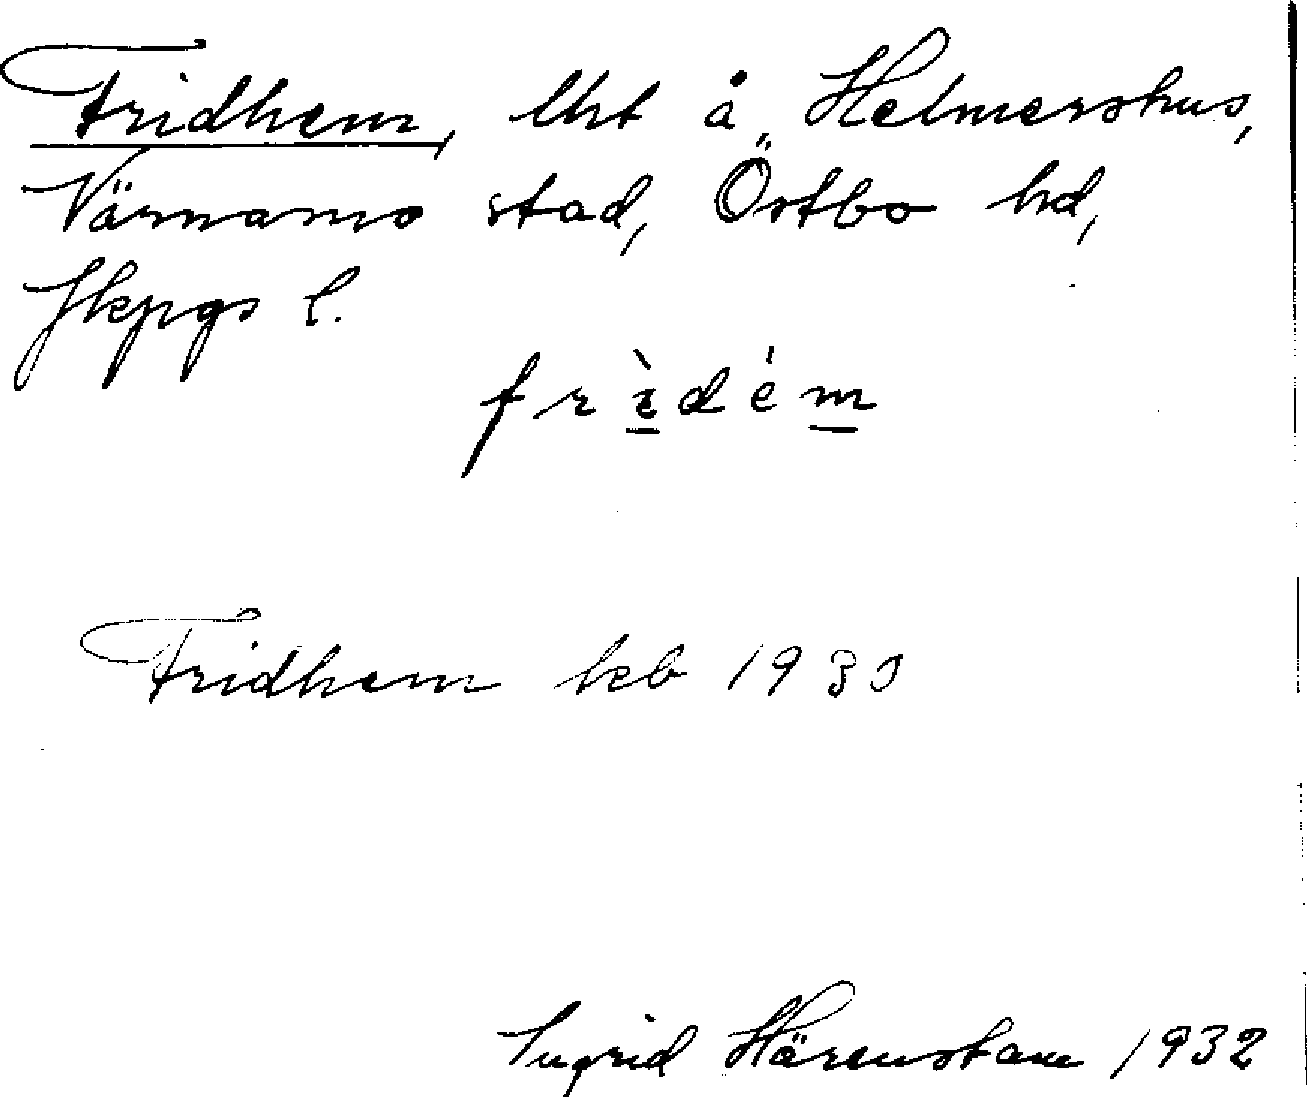 Fridhem, lht å Helmershus,
Värnamo stad, Östbo hd,
Jkpgs l.
frìdém
Fridhem kb 1930
Ingrid Härenstam 1932